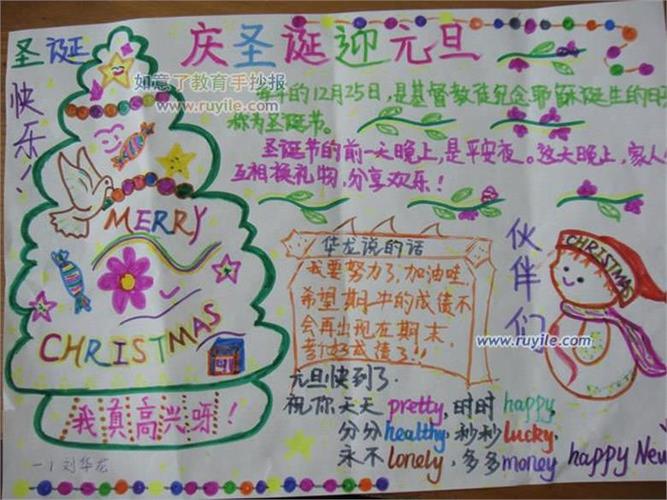 圣诞
快乐!
庆圣诞迎元旦
如意了教育手抄报
www.ruyile.com
每年的12月25日,是基督教徒纪念耶稣诞生的日
称为圣诞节。
圣诞节的前一天晚上,是平安夜。这天晚上,家人
互相换礼物,分享欢乐!
MERRY
CHRISTMAS
我真高兴呀!
一1 刘华龙
华龙说的话
我要努力了,加油哇
希望期中的成绩不
会再出现在期末,
考好成绩了!!
伙伴们
CHRISTMAS
www.ruyile.com
元旦快到了.
祝你天天pretty,时时happy,
分分healthy,秒秒lucky,
永不lonely,多多money happy New